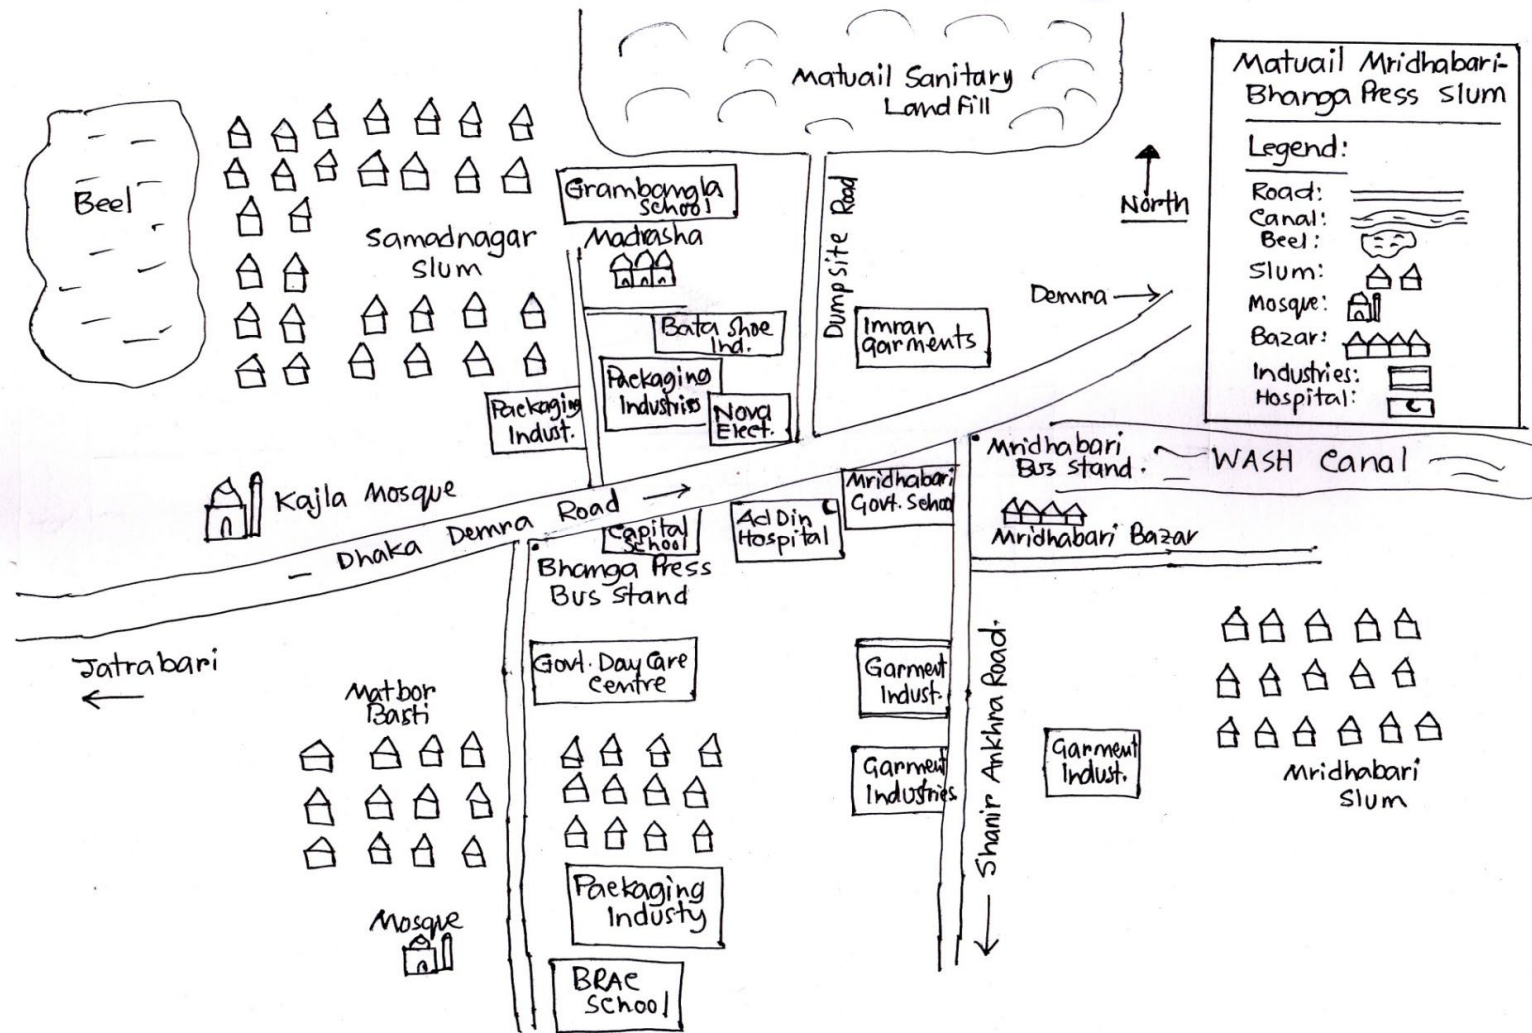 Matuail Sanitary
Land Fill
Matuail Mridhabari-
Bhanga Press Slum
Legend:
Road:
Canal:
Beel:
Slum:
Mosque:
Bazar:
Industries:
Hospital:
North
Beel
Samadnagar
Slum
Grambangla
School
Madrasha
Dumpsite Road
Demra
Bata Shoe
Ind.
Imran
Garments
Packaging
Industries
Packaging
Indust.
Nova
Elect.
Kajla Mosque
Dhaka Demra Road
Capital
School
Ad Din
Hospital
Mridhabari
Govt. School
Mridhabari
Bus Stand.
WASH Canal
Mridhabari Bazar
Bhanga Press
Bus Stand
Jatrabari
Govt. Day Care
Centre
Matbor
Basti
Garment
Indust.
Shanir Ankhra Road.
Garment
Industries
Garment
Indust.
Mridhabari
Slum
Packaging
Industy
Mosque
BRAC
School